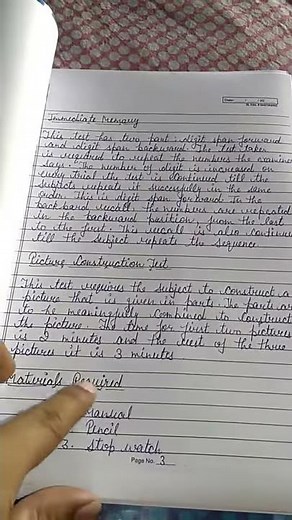 Immediate Memory
This test has two part : digit span forward
and digit span backward. The test taker
is required to repeat the numbers the examiner
says. The number of digit is increased on
every trial the test is continued till the
subjects repeats it successfully in the same
order. This is digit span forward. In the
backward such the numbers are repeated
in the backward position, from the last
to the first. This recall is also continue
till the subject repeate the sequence.
Picture Construction Test
This test requires the subject to construct a
picture that is given in parts. The parts are
to be meaningfully combined to construct
the picture. The time for first two pictures
is 2 minutes and the rest of the three
pictures it is 3 minutes.
Materials Required
Manual
Pencil
3. Stop watch
Page No. 3